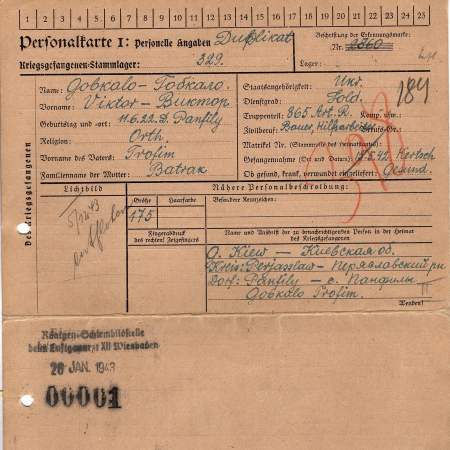 1 2 3 4 5 6 7 8 9 10 11 12 13 14 15 16 17 18 19 20 21 22 23 24 25
Personalkarte I: Personelle Angaben Duplikat
Beschriftung der Erkennungsmarke:
Nr. 2860
Kriegsgefangenen-Stammlager: 329.
Lager:
Des Kriegsgefangenen
Name: Gobkalo-Гобкало.
Vorname: Viktor-Виктор.
Geburtstag und -ort: 11.6.22. D. Panfily
Religion: Orth.
Vorname des Vaters: Trofim
Familienname der Mutter: Batrak
Staatsangehörigkeit: Ukr.
Dienstgrad: Sold.
184
Truppenteil: 865 Art. R. Komp. usw.:
Zivilberuf: Bauer, Hilfsarbeiter Berufs-Gr.:
Matrikel Nr. (Stammrolle des Heimatstaates):
Gefangennahme (Ort und Datum): 17.5.42 Kertsch
Ob gesund, krank, verwundet eingeliefert: Gesund.
Lichtbild
Nähere Personalbeschreibung:
Größe
Haarfarbe
Besondere Kennzeichen:
175
entflohen
Fingerabdruck
des rechten! Zeigefingers
Name und Anschrift der zu benachrichtigenden Person in der Heimat
des Kriegsgefangenen
O. Kiew — Киевская об.
Kreis: Perjasslaw- Переславский рн
Dorf: Panfily — с. Панфилы
Gobkalo Trofim.
Wenden!
Röntgen-Schirmbildstelle
beim Luftgauarzt XII Wiesbaden
26 JAN. 1943
00001